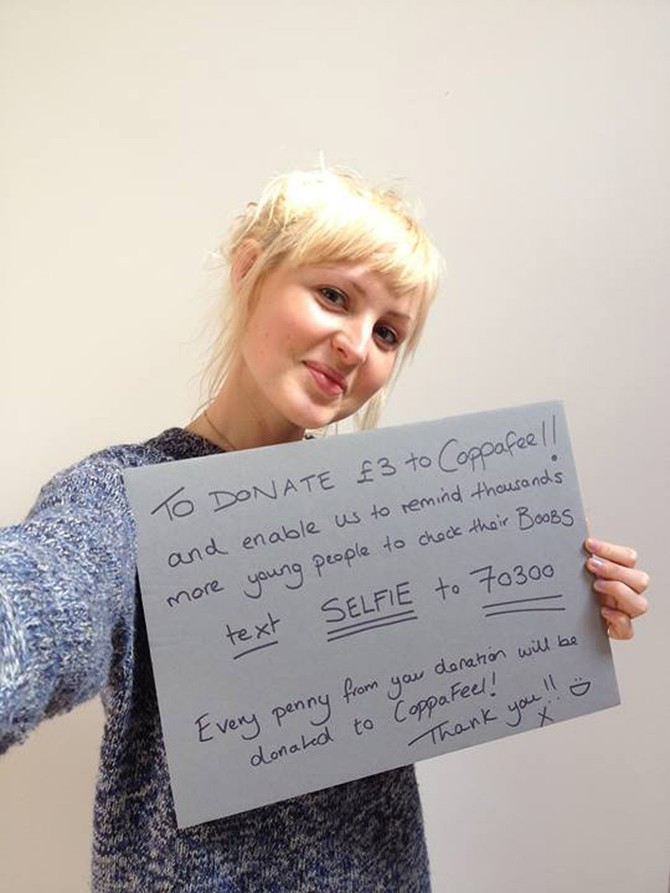 To DONATE £3 to Coppafeel!!
and enable us to remind thousands
more young people to check their BOOBS
text SELFIE to 70300
Every penny from your donation will be
donated to CoppaFeel!
Thank you!! x